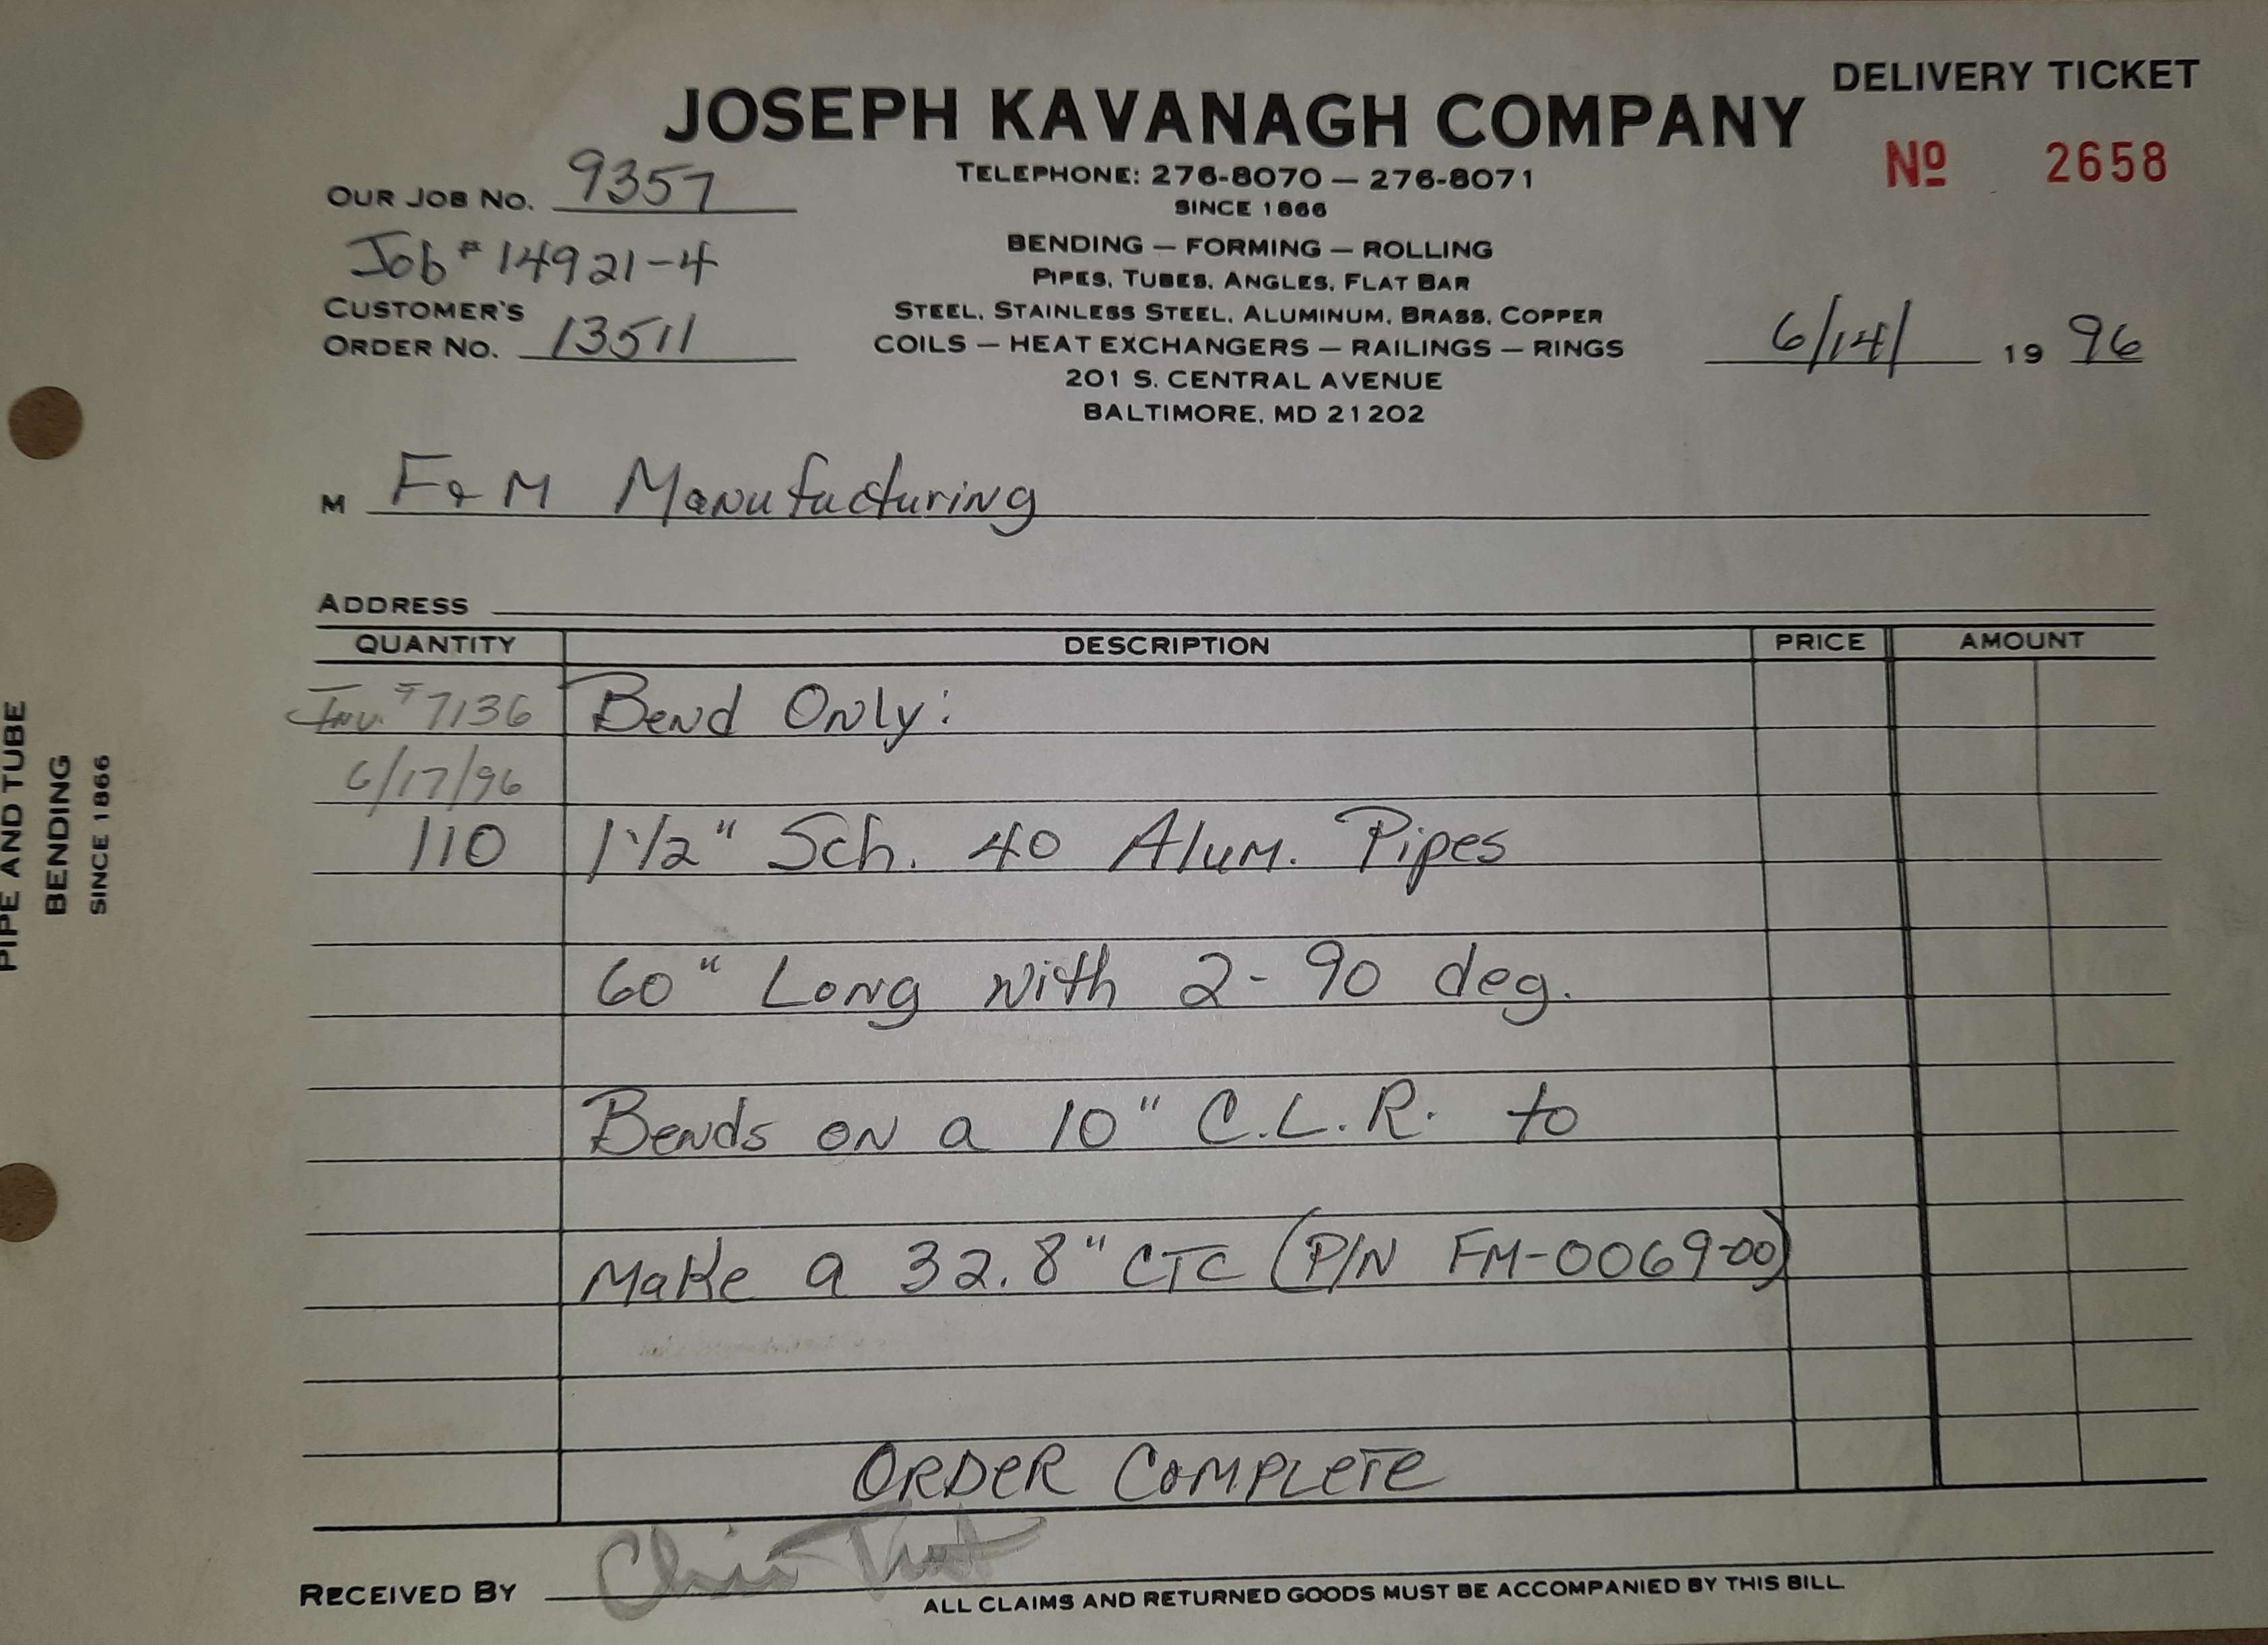 DELIVERY TICKET
JOSEPH KAVANAGH COMPANY
Nº 2658
TELEPHONE: 276-8070 — 276-8071
SINCE 1866
OUR JOB NO. 9357
Job # 14921-4
CUSTOMER'S
ORDER NO. 13511
BENDING — FORMING — ROLLING
PIPES, TUBES, ANGLES, FLAT BAR
STEEL, STAINLESS STEEL, ALUMINUM, BRASS, COPPER
COILS — HEAT EXCHANGERS — RAILINGS — RINGS
201 S. CENTRAL AVENUE
BALTIMORE, MD 21202
6/14/ 19 96
M F & M Manufacturing
ADDRESS
QUANTITY DESCRIPTION PRICE AMOUNT
Inv. # 7136 Bend Only:
6/17/96
110 1 1/2" Sch. 40 Alum. Pipes
60" Long with 2- 90 deg.
Bends on a 10" C.L.R. to
Make a 32.8" CTC (P/N FM-0069-00)
ORDER COMPLETE
RECEIVED BY
ALL CLAIMS AND RETURNED GOODS MUST BE ACCOMPANIED BY THIS BILL.
PIPE AND TUBE
BENDING
SINCE 1866